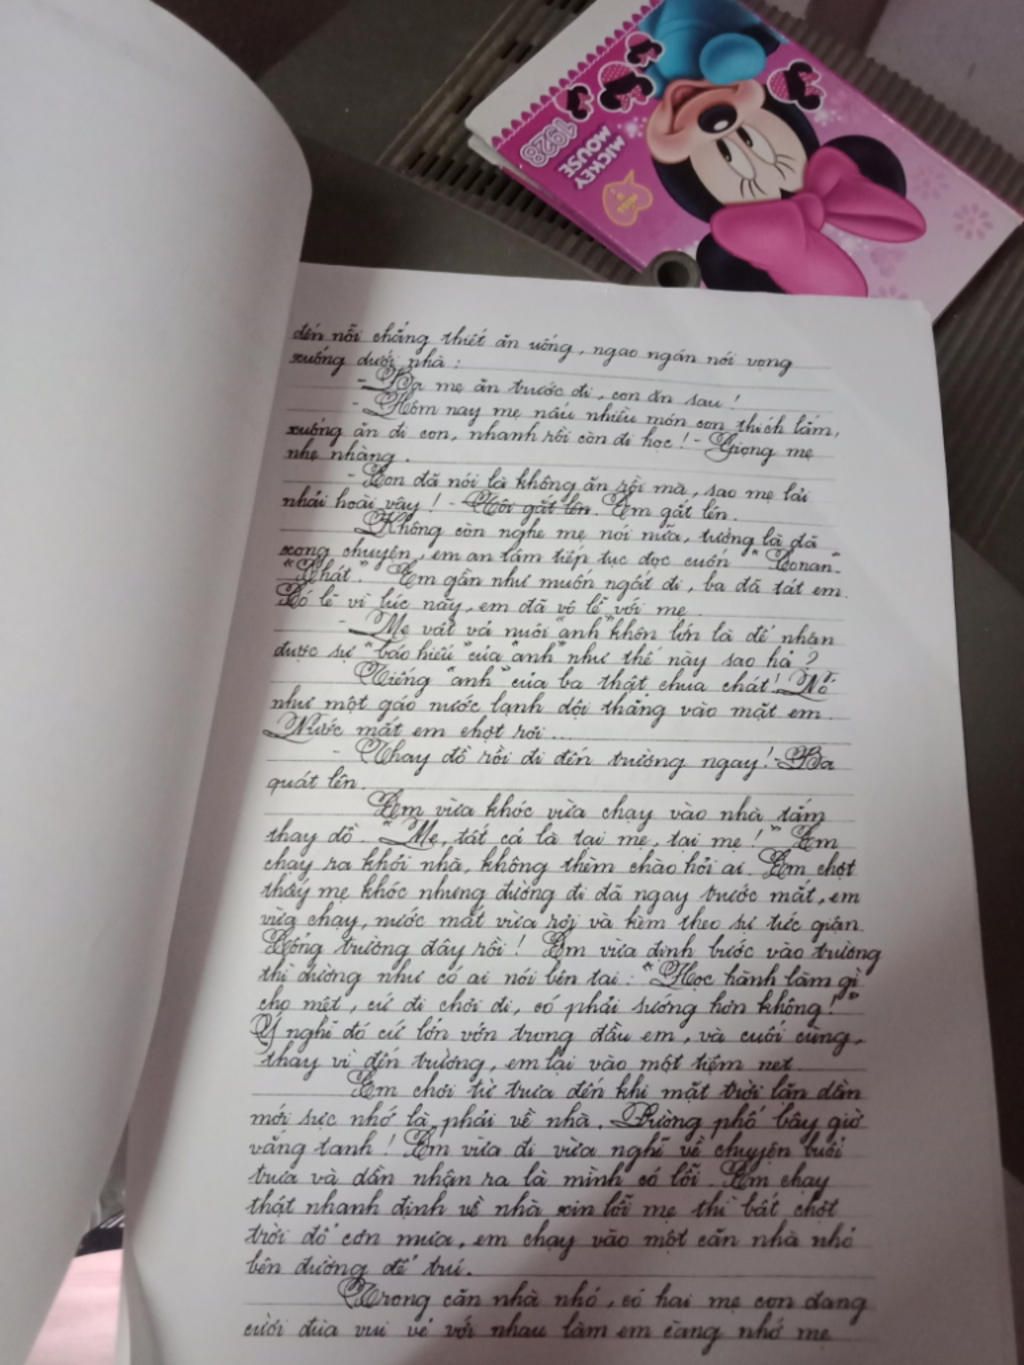 1928
MICKEY
MOUSE
đến nỗi chẳng thiết ăn uống, ngao ngán nói vọng
xuống dưới nhà :
- Ba mẹ ăn trước đi, con ăn sau !
- Hôm nay mẹ nấu nhiều món con thích lắm,
xuống ăn đi con, nhanh rồi còn đi học ! - Giọng mẹ
nhẹ nhàng .
- Con đã nói là không ăn rồi mà, sao mẹ lải
nhải hoài vậy ! - Tôi gắt lên. Em gắt lên.
Không còn nghe mẹ nói nữa, tưởng là đã
xong chuyện, em an tâm tiếp tục đọc cuốn "Conan".
"Chát." Em gần như muốn ngất đi, ba đã tát em.
Có lẽ vì lúc nãy, em đã vô lễ với mẹ.
- Mẹ vất vả nuôi "anh" khôn lớn là để nhận
được sự "báo hiếu" của "anh" như thế này sao hả ?
Tiếng "anh" của ba thật chua chát! Nó
như một gáo nước lạnh dội thẳng vào mặt em.
Nước mắt em chợt rơi...
- Thay đồ rồi đi đến trường ngay! - Ba
quát lên.
Em vừa khóc vừa chạy vào nhà tắm
thay đồ. "Mẹ, tất cả là tại mẹ, tại mẹ !" Em
chạy ra khỏi nhà, không thèm chào hỏi ai. Em chợt
thấy mẹ khóc nhưng đường đi đã ngay trước mắt, em
vừa chạy, nước mắt vừa rơi và kèm theo sự tức giận.
Cổng trường đây rồi ! Em vừa định bước vào trường
thì dường như có ai nói bên tai : "Học hành làm gì
cho mệt, cứ đi chơi đi, có phải sướng hơn không!"
Ý nghĩ đó cứ lởn vởn trong đầu em, và cuối cùng,
thay vì đến trường, em lại vào một tiệm net.
Em chơi từ trưa đến khi mặt trời lặn dần
mới sực nhớ là phải về nhà. Đường phố bây giờ
vắng tanh ! Em vừa đi vừa nghĩ về chuyện buổi
trưa và dần nhận ra là mình có lỗi. Em chạy
thật nhanh định về nhà xin lỗi mẹ thì bất chợt
trời đổ cơn mưa, em chạy vào một căn nhà nhỏ
bên đường để trú.
Trong căn nhà nhỏ, có hai mẹ con đang
cười đùa vui vẻ với nhau làm em càng nhớ mẹ